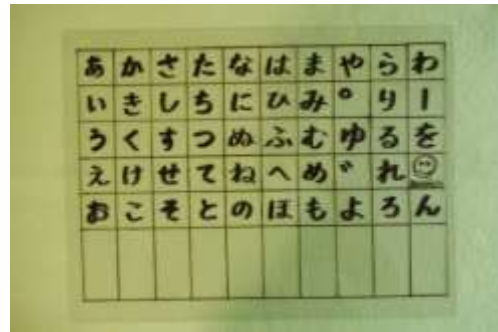 あかさたなはまやらわ
いきしちにひみ゜りー
うくすつぬふむゆるを
えけせてねへめ゛れ
おこそとのほもよろん